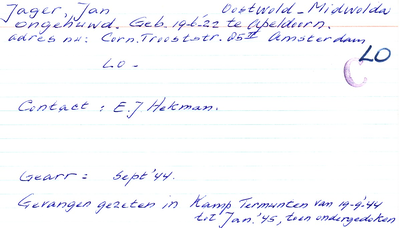 Jager, Jan Oostwold - Midwolda
ongehuwd. Geb. 19-6-'22 te Apeldoorn.
adres nu: Corn. Trooststr. 05 II Amsterdam
LO
LO -
Contact : E.J Hekman.
Gearr : Sept '44.
Gevangen gezeten in Kamp Termunten van 19-9-'44
tot Jan. '45, toen ondergedoken